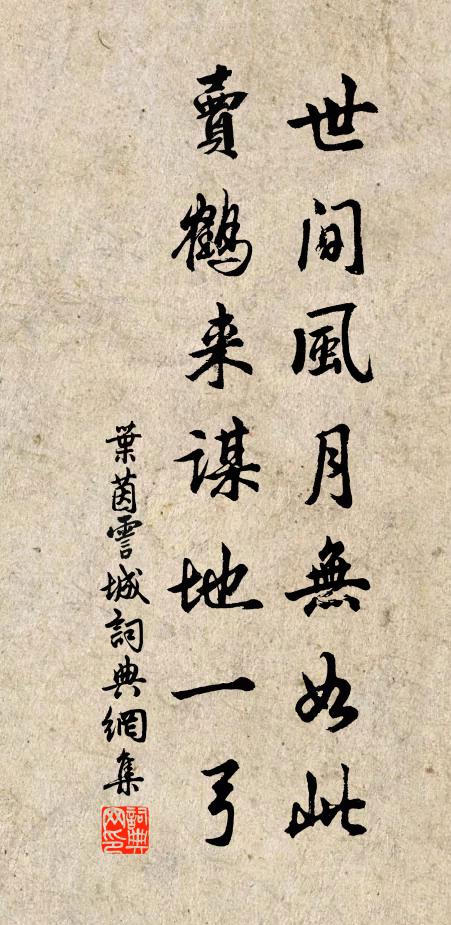 世间風月無如此
賣鶴来謀地一弓
葉茵雲城詞典網集
詞典網印